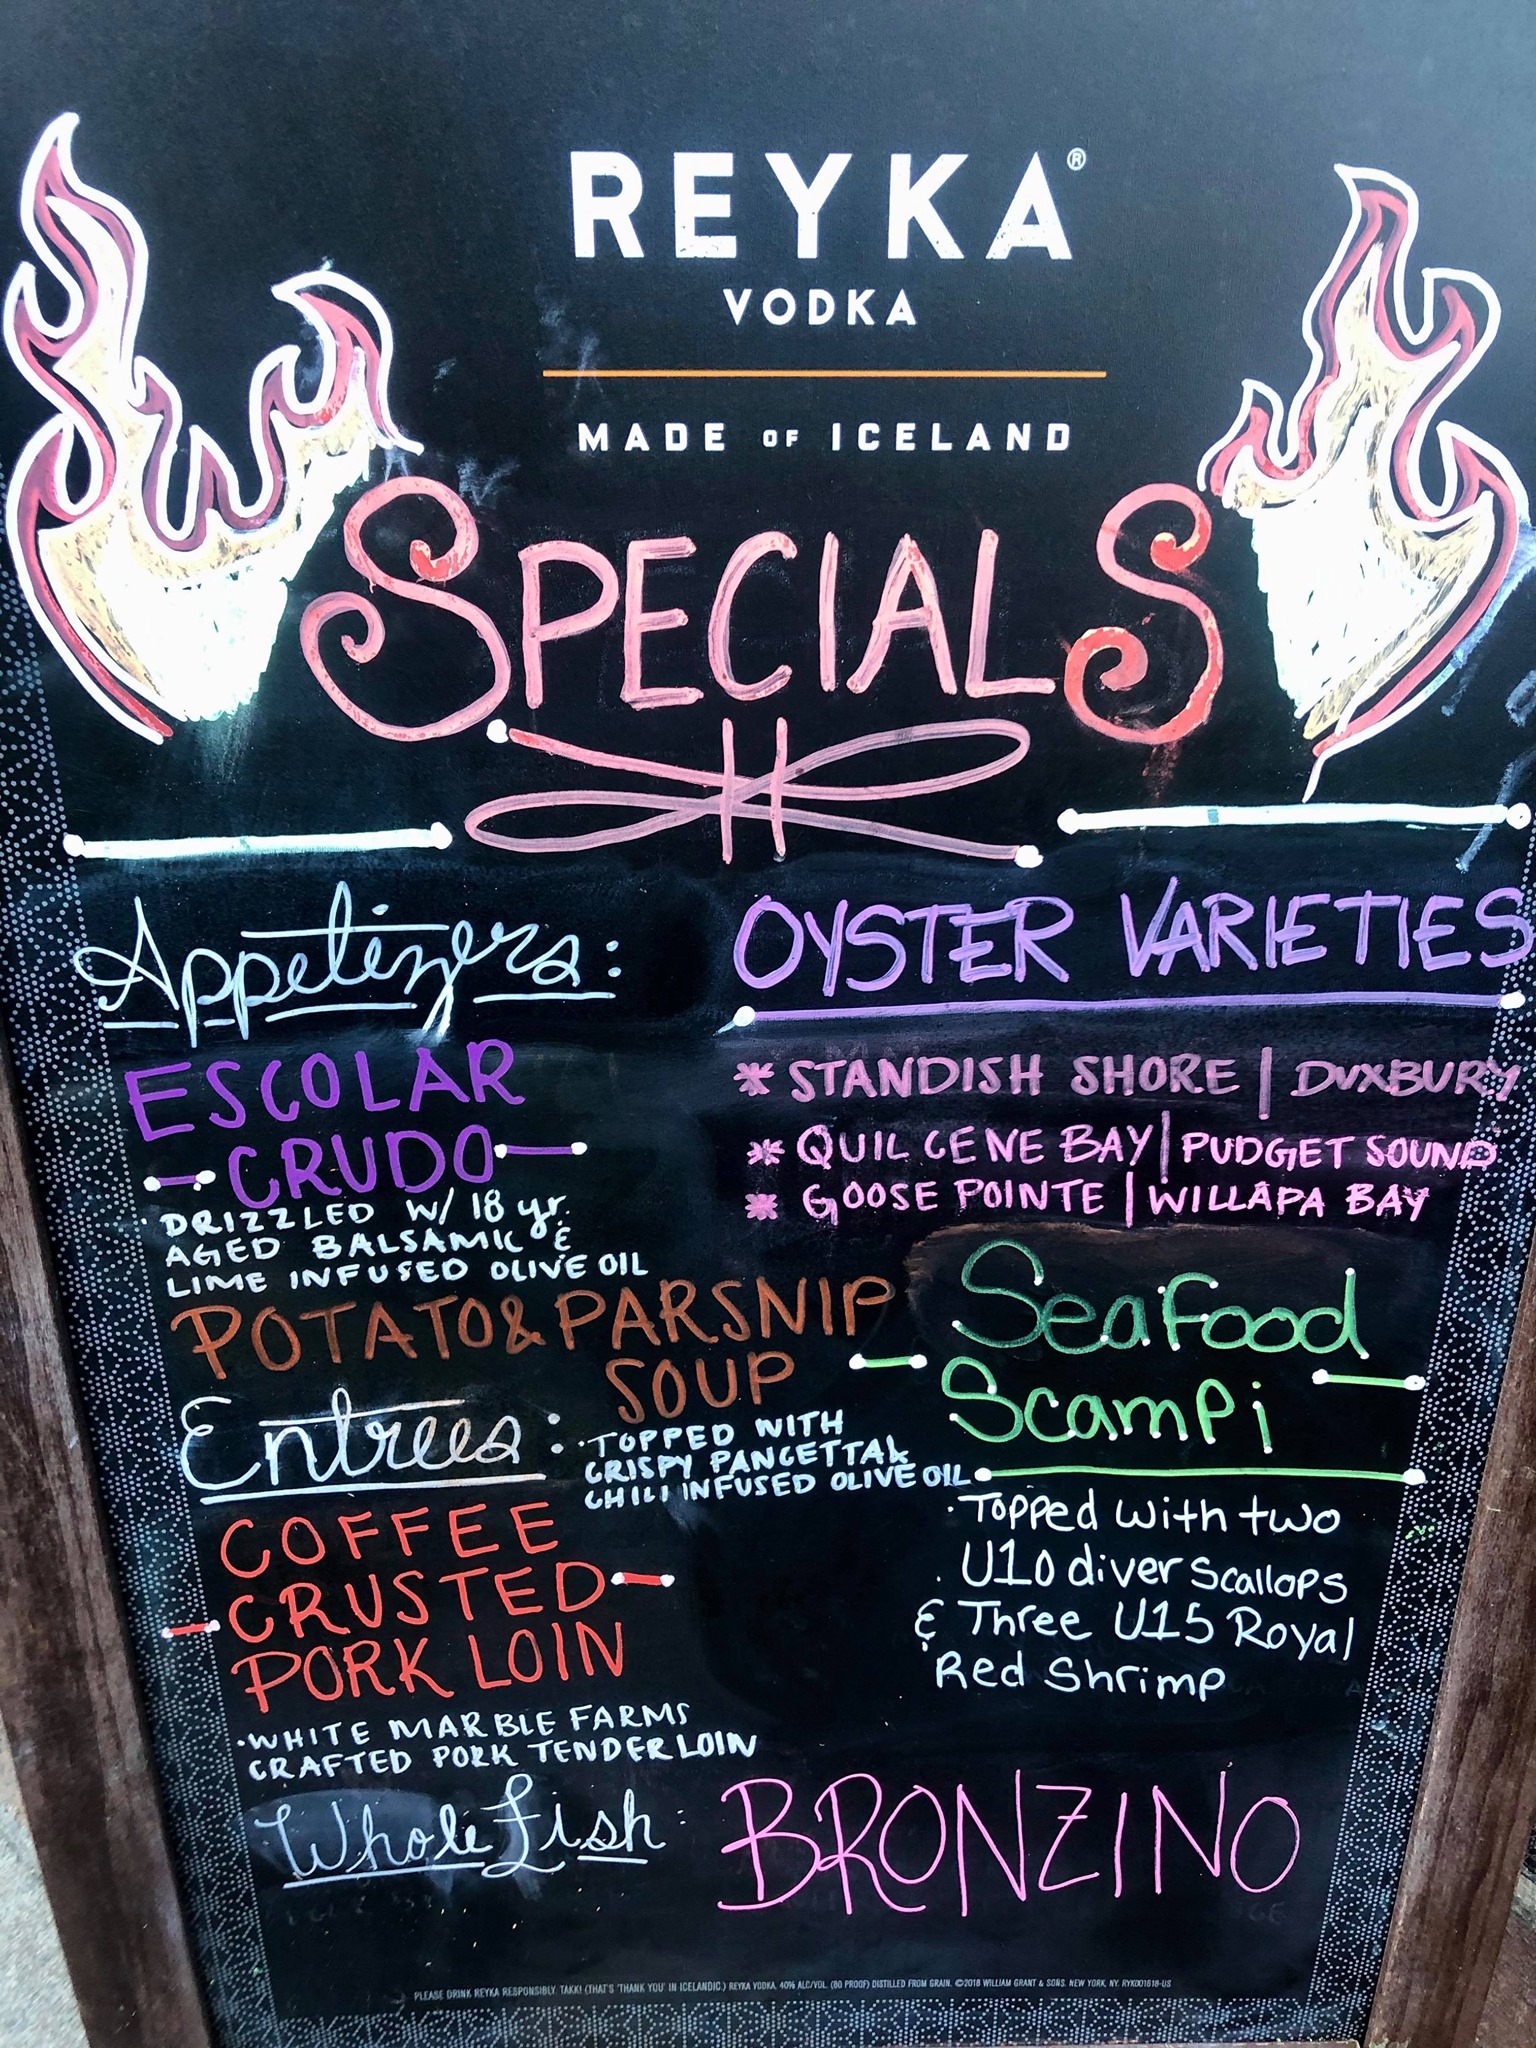 REYKA®
VODKA
MADE OF ICELAND
SPECIALS
Appetizers:
ESCOLAR
CRUDO
· DRIZZLED W/ 18 yr.
AGED BALSAMIC &
LIME INFUSED OLIVE OIL
POTATO & PARSNIP
SOUP
· TOPPED WITH
CRISPY PANCETTA &
CHILI INFUSED OLIVE OIL
Entrees:
COFFEE
CRUSTED
PORK LOIN
· WHITE MARBLE FARMS
CRAFTED PORK TENDERLOIN
OYSTER VARIETIES
* STANDISH SHORE | DUXBURY
* QUILCENE BAY | PUDGET SOUND
* GOOSE POINTE | WILLAPA BAY
Seafood
Scampi
· Topped with two
. U10 diver scallops
& Three U15 Royal
Red Shrimp
Whole Fish: BRONZINO
PLEASE DRINK REYKA RESPONSIBLY. TAKK! (THAT'S 'THANK YOU' IN ICELANDIC.) REYKA VODKA, 40% ALC/VOL. (80 PROOF) DISTILLED FROM GRAIN. ©2018 WILLIAM GRANT & SONS. NEW YORK, NY. RYK001618-US